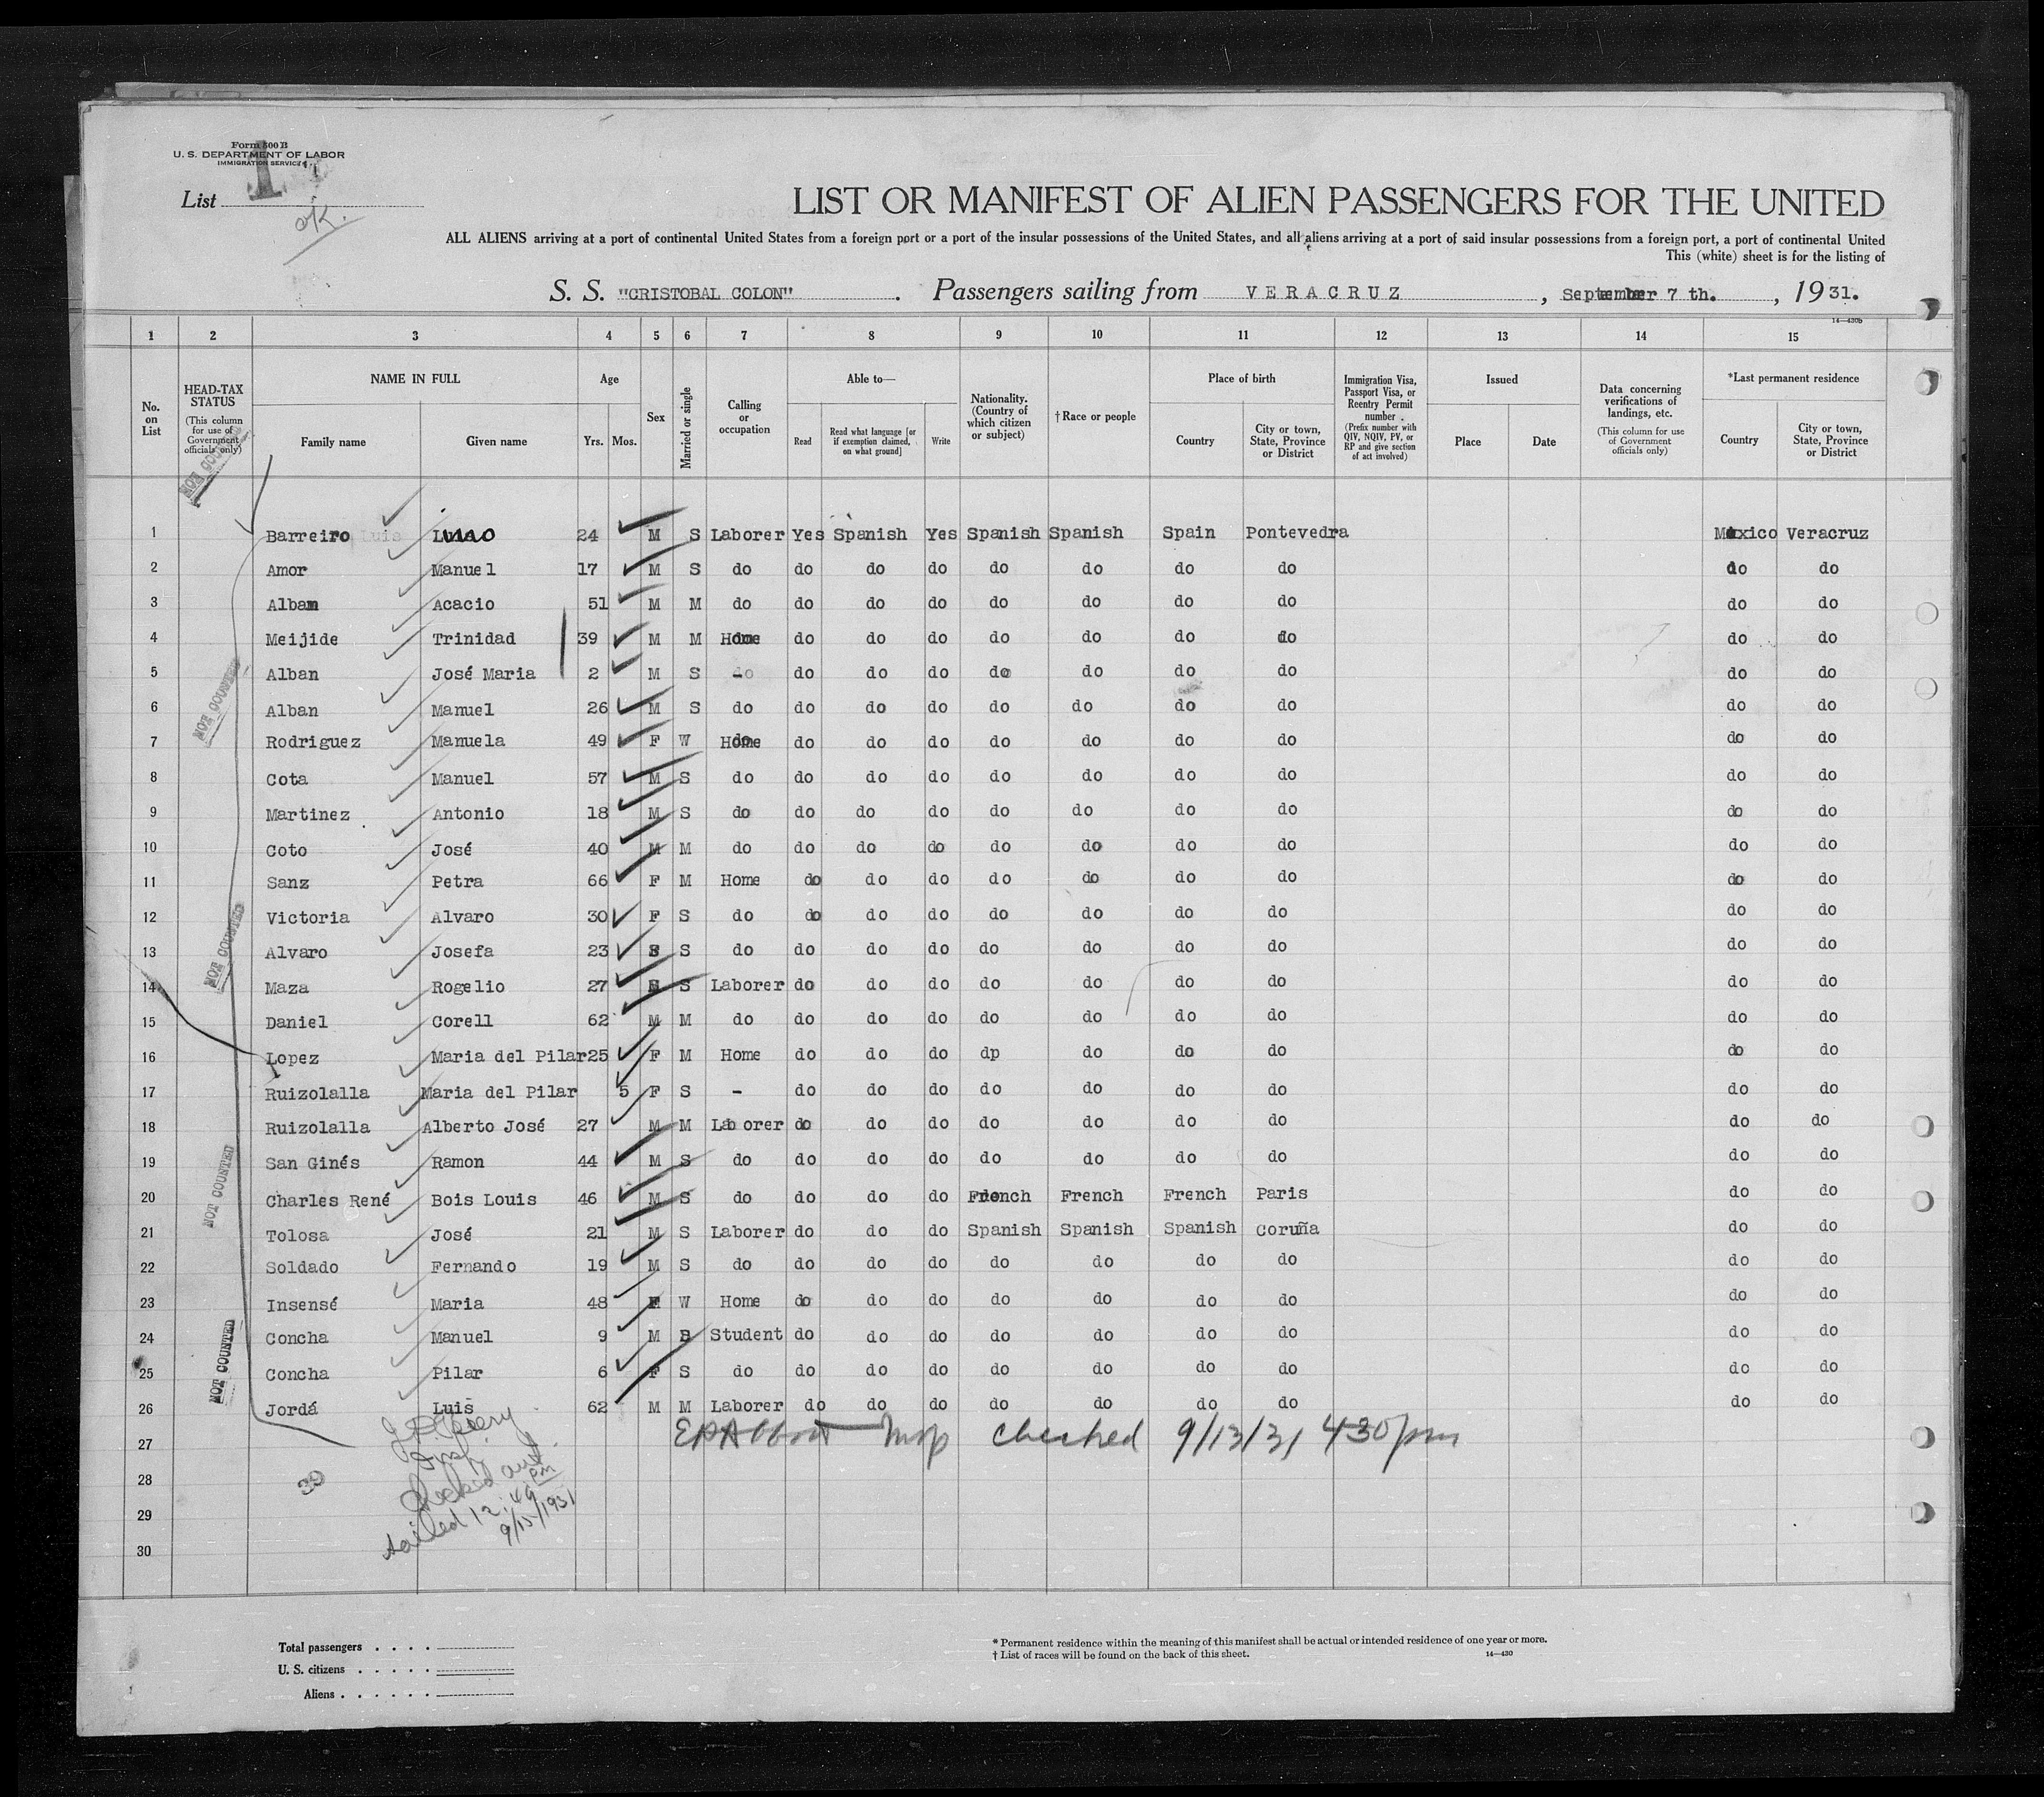 Form 500 B
U. S. DEPARTMENT OF LABOR
IMMIGRATION SERVICE
List 1
OK.
LIST OR MANIFEST OF ALIEN PASSENGERS FOR THE UNITED
ALL ALIENS arriving at a port of continental United States from a foreign port or a port of the insular possessions of the United States, and all aliens arriving at a port of said insular possessions from a foreign port, a port of continental United
This (white) sheet is for the listing of
S. S. "CRISTOBAL COLON" . Passengers sailing from VERACRUZ , September 7 th. , 1931.
14—430b
1 2 3 4 5 6 7 8 9 10 11 12 13 14 15
No. on List
HEAD-TAX STATUS
(This column for use of Government officials only)
NAME IN FULL
Family name Given name
Age
Yrs. Mos.
Sex
Married or single
Calling or occupation
Able to—
Read
Read what language [or if exemption claimed, on what ground]
Write
Nationality. (Country of which citizen or subject)
† Race or people
Place of birth
Country
City or town, State, Province or District
Immigration Visa, Passport Visa, or Reentry Permit number
(Prefix number with QIV, NQIV, PV, or RP and give section of act involved)
Issued
Place Date
Data concerning verifications of landings, etc.
(This column for use of Government officials only)
*Last permanent residence
Country
City or town, State, Province or District
NOT COUNTED
1 Barreiro 24 M S Laborer Yes Spanish Yes Spanish Spanish Spain Pontevedra Mexico Veracruz
2 Amor Manuel 17 M S do do do do do do do do do do
3 Alban Acacio 51 M M do do do do do do do do do do
4 Meijide Trinidad 39 M M Home do do do do do do do do do
5 Alban José Maria 2 M S - do do do do do do do do do
NOT COUNTED
6 Alban Manuel 26 M S do do do do do do do do do do
7 Rodriguez Manuela 49 F W Home do do do do do do do do do
8 Cota Manuel 57 M S do do do do do do do do do do
9 Martinez Antonio 18 M S do do do do do do do do do do
10 Coto José 40 M M do do do do do do do do do do
11 Sanz Petra 66 F M Home do do do do do do do do do
12 Victoria Alvaro 30 F S do do do do do do do do do do
NOT COUNTED
13 Alvaro Josefa 23 S do do do do do do do do do do
14 Maza Rogelio 27 S Laborer do do do do do do do do do
15 Daniel Corell 62 M M do do do do do do do do do do
16 Lopez Maria del Pilar 25 F M Home do do do dp do do do do do
17 Ruizolalla Maria del Pilar 5 F S - do do do do do do do do do
18 Ruizolalla Alberto José 27 M M Laborer do do do do do do do do do
19 San Ginés Ramon 44 M S do do do do do do do do do do
NOT COUNTED
20 Charles René Bois Louis 46 M S do do do do French French French Paris do do
21 Tolosa José 21 M S Laborer do do do Spanish Spanish Spanish Coruña do do
22 Soldado Fernando 19 M S do do do do do do do do do do
23 Insensé Maria 48 F W Home do do do do do do do do do
24 Concha Manuel 9 M S Student do do do do do do do do do
NOT COUNTED
25 Concha Pilar 6 F S do do do do do do do do do do
26 Jordá Luis 62 M M Laborer do do do do do do do do do
27 EPAbbott Insp checked 9/13/31 430 pm
28 30
checked out
29 sailed 12:49 PM
9/15/1931
30
Total passengers
U. S. citizens
Aliens
* Permanent residence within the meaning of this manifest shall be actual or intended residence of one year or more.
† List of races will be found on the back of this sheet.
14—430